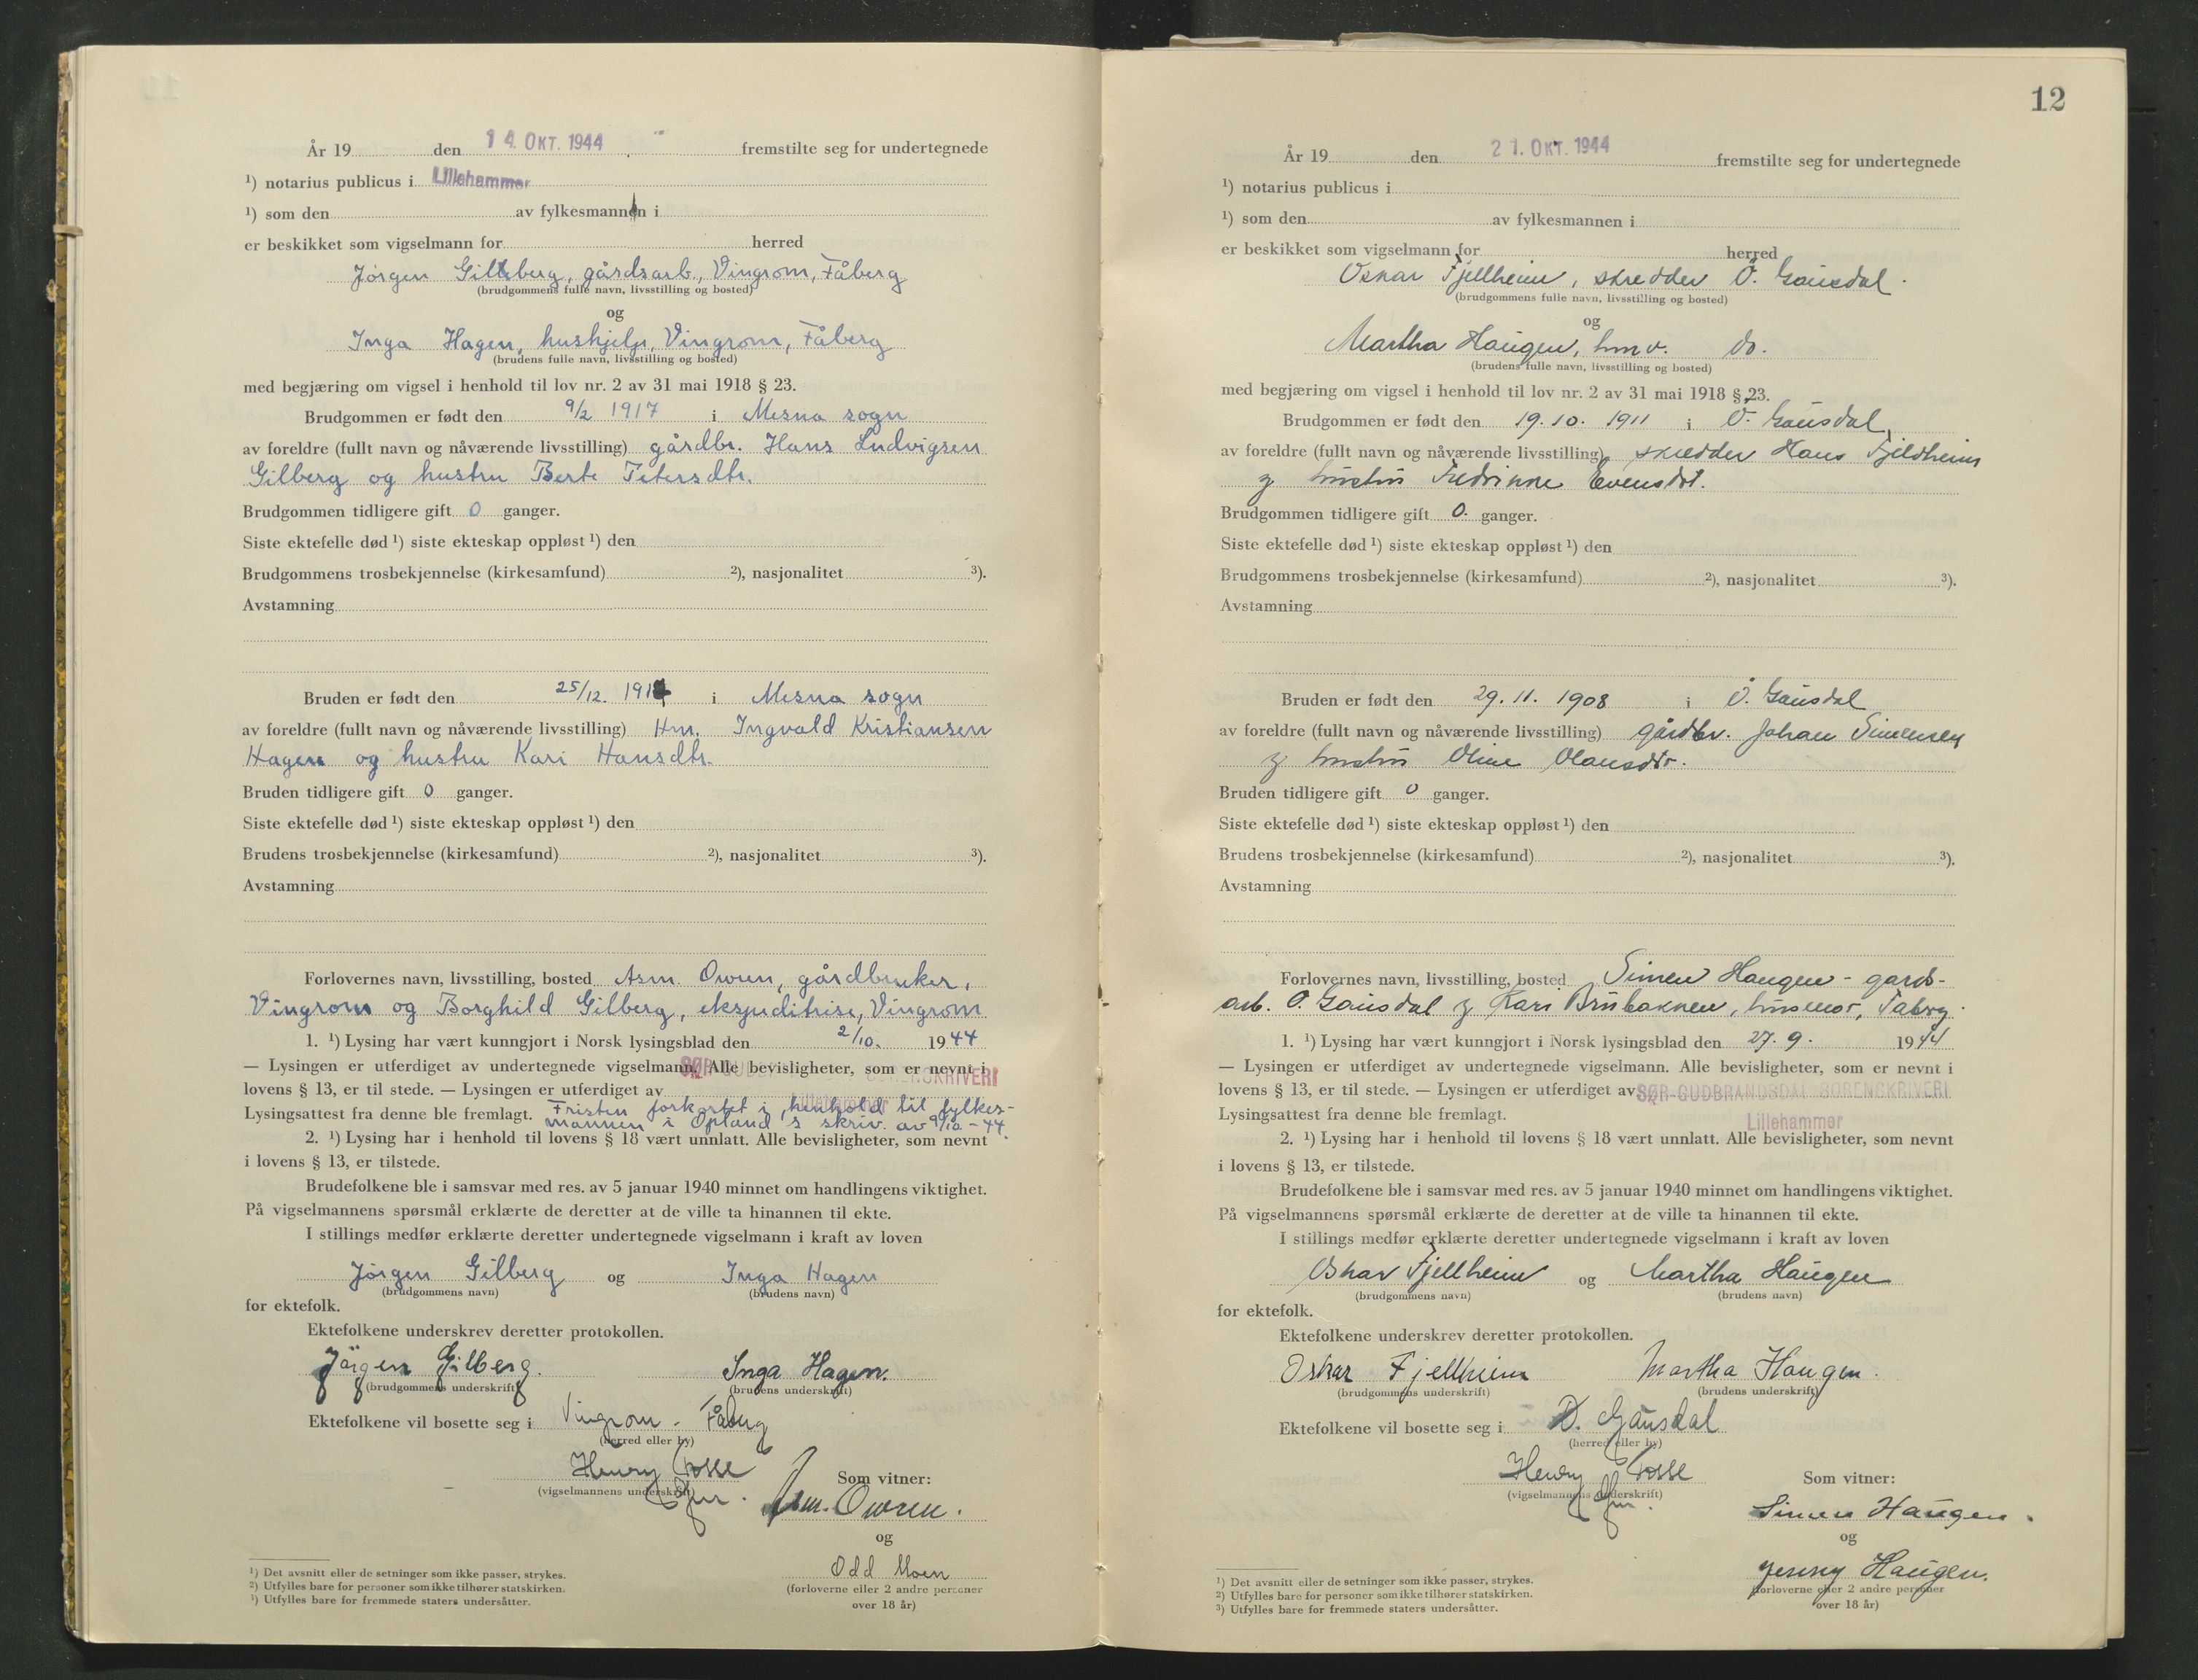 År 19 den 14. OKT. 1944 fremstilte seg for undertegnede
¹) notarius publicus i Lillehammer
¹) som den av fylkesmannen i
er beskikket som vigselmann for herred
Jörgen Gilberg, gårdsarb., Vingrom, Fåberg
(brudgommens fulle navn, livsstilling og bosted)
og
Inga Hagen, hushjelp, Vingrom, Fåberg
(brudens fulle navn, livsstilling og bosted)
med begjæring om vigsel i henhold til lov nr. 2 av 31 mai 1918 § 23.
Brudgommen er født den 9/2 1917 i Mesna sogn
av foreldre (fullt navn og nåværende livsstilling) gårdbr. Hans Ludvigsen
Gilberg og hustru Berte Petersdtr.
Brudgommen tidligere gift 0 ganger.
Siste ektefelle død ¹) siste ekteskap oppløst ¹) den
Brudgommens trosbekjennelse (kirkesamfund) ²), nasjonalitet ³).
Avstamning
Bruden er født den 25/12. 191 i Mesna sogn
av foreldre (fullt navn og nåværende livsstilling) Hm. Ingvald Kristiansen
Hagen og hustru Kari Hansdtr.
Bruden tidligere gift 0 ganger.
Siste ektefelle død ¹) siste ekteskap oppløst ¹) den
Brudens trosbekjennelse (kirkesamfund) ²), nasjonalitet ³).
Avstamning
Forlovernes navn, livsstilling, bosted Asm. Owren, gårdbruker,
Vingrom og Borghild Gilberg, ekspeditrise, Vingrom
1. ¹) Lysing har vært kunngjort i Norsk lysingsblad den 2/10. 1944
— Lysingen er utferdiget av undertegnede vigselmann. Alle bevisligheter, som er nevnt i
lovens § 13, er til stede. — Lysingen er utferdiget av SØR-GUDBRANDSDAL SORENSKRIVERI
Lillehammer
Lysingsattest fra denne ble fremlagt. Fristen forkortet i henhold til fylkes-
mannen i Opland's skriv. av 9/10-44.
2. ¹) Lysing har i henhold til lovens § 18 vært unnlatt. Alle bevisligheter, som nevnt
i lovens § 13, er tilstede.
Brudefolkene ble i samsvar med res. av 5 januar 1940 minnet om handlingens viktighet.
På vigselmannens spørsmål erklærte de deretter at de ville ta hinannen til ekte.
I stillings medfør erklærte deretter undertegnede vigselmann i kraft av loven
Jörgen Gilberg og Inga Hagen
(brudgommens navn) (brudens navn)
for ektefolk.
Ektefolkene underskrev deretter protokollen.
Jörgen Gilberg. Inga Hagen.
(brudgommens underskrift) (brudens underskrift)
Ektefolkene vil bosette seg i Vingrom - Fåberg
(herred eller by)
Henry Fosse
(vigselmannens underskrift)
Som vitner:
Asm. Owren.
og
Odd Moen
(forloverne eller 2 andre personer
over 18 år)
¹) Det avsnitt eller de setninger som ikke passer, strykes.
²) Utfylles bare for personer som ikke tilhører statskirken.
¹) Utfylles bare for fremmede staters undersåtter.
12
År 19 den 21. OKT. 1944 fremstilte seg for undertegnede
¹) notarius publicus i
¹) som den av fylkesmannen i
er beskikket som vigselmann for herred
Oskar Fjellheim, skredder Ö. Gausdal.
(brudgommens fulle navn, livsstilling og bosted)
og
Martha Haugen, hmv. do.
(brudens fulle navn, livsstilling og bosted)
med begjæring om vigsel i henhold til lov nr. 2 av 31 mai 1918 § 23.
Brudgommen er født den 19.10. 1911 i Ö. Gausdal,
av foreldre (fullt navn og nåværende livsstilling) skredder Hans Fjeldheim
og hustru Fredrikke Evensdt.
Brudgommen tidligere gift 0. ganger.
Siste ektefelle død ¹) siste ekteskap oppløst ¹) den
Brudgommens trosbekjennelse (kirkesamfund) ²), nasjonalitet ³).
Avstamning
Bruden er født den 29.11. 1908 i Ö. Gausdal
av foreldre (fullt navn og nåværende livsstilling) gårdbr. Johan Simensen
og hustru Oline Olausdtr.
Bruden tidligere gift 0 ganger.
Siste ektefelle død ¹) siste ekteskap oppløst ¹) den
Brudens trosbekjennelse (kirkesamfund) ²), nasjonalitet ³).
Avstamning
Forlovernes navn, livsstilling, bosted Simen Haugen - gards-
arb. Ö. Gausdal og Kari Brubakken, husmor, Faberg.
1. ¹) Lysing har vært kunngjort i Norsk lysingsblad den 27.9. 1944
— Lysingen er utferdiget av undertegnede vigselmann. Alle bevisligheter, som er nevnt i
lovens § 13, er til stede. — Lysingen er utferdiget av SØR-GUDBRANDSDAL SORENSKRIVERI
Lysingsattest fra denne ble fremlagt. Lillehammer
2. ¹) Lysing har i henhold til lovens § 18 vært unnlatt. Alle bevisligheter, som nevnt
i lovens § 13, er tilstede.
Brudefolkene ble i samsvar med res. av 5 januar 1940 minnet om handlingens viktighet.
På vigselmannens spørsmål erklærte de deretter at de ville ta hinannen til ekte.
I stillings medfør erklærte deretter undertegnede vigselmann i kraft av loven
Oskar Fjellheim og Martha Haugen
(brudgommens navn) (brudens navn)
for ektefolk.
Ektefolkene underskrev deretter protokollen.
Oskar Fjellheim Martha Haugen.
(brudgommens underskrift) (brudens underskrift)
Ektefolkene vil bosette seg i Ö. Gausdal
(herred eller by)
Henry Fosse
(vigselmannens underskrift)
Som vitner:
Simen Haugen.
og
Jenny Haugen.
(forloverne eller 2 andre personer
over 18 år)
¹) Det avsnitt eller de setninger som ikke passer, strykes.
²) Utfylles bare for personer som ikke tilhører statskirken.
³) Utfylles bare for fremmede staters undersåtter.